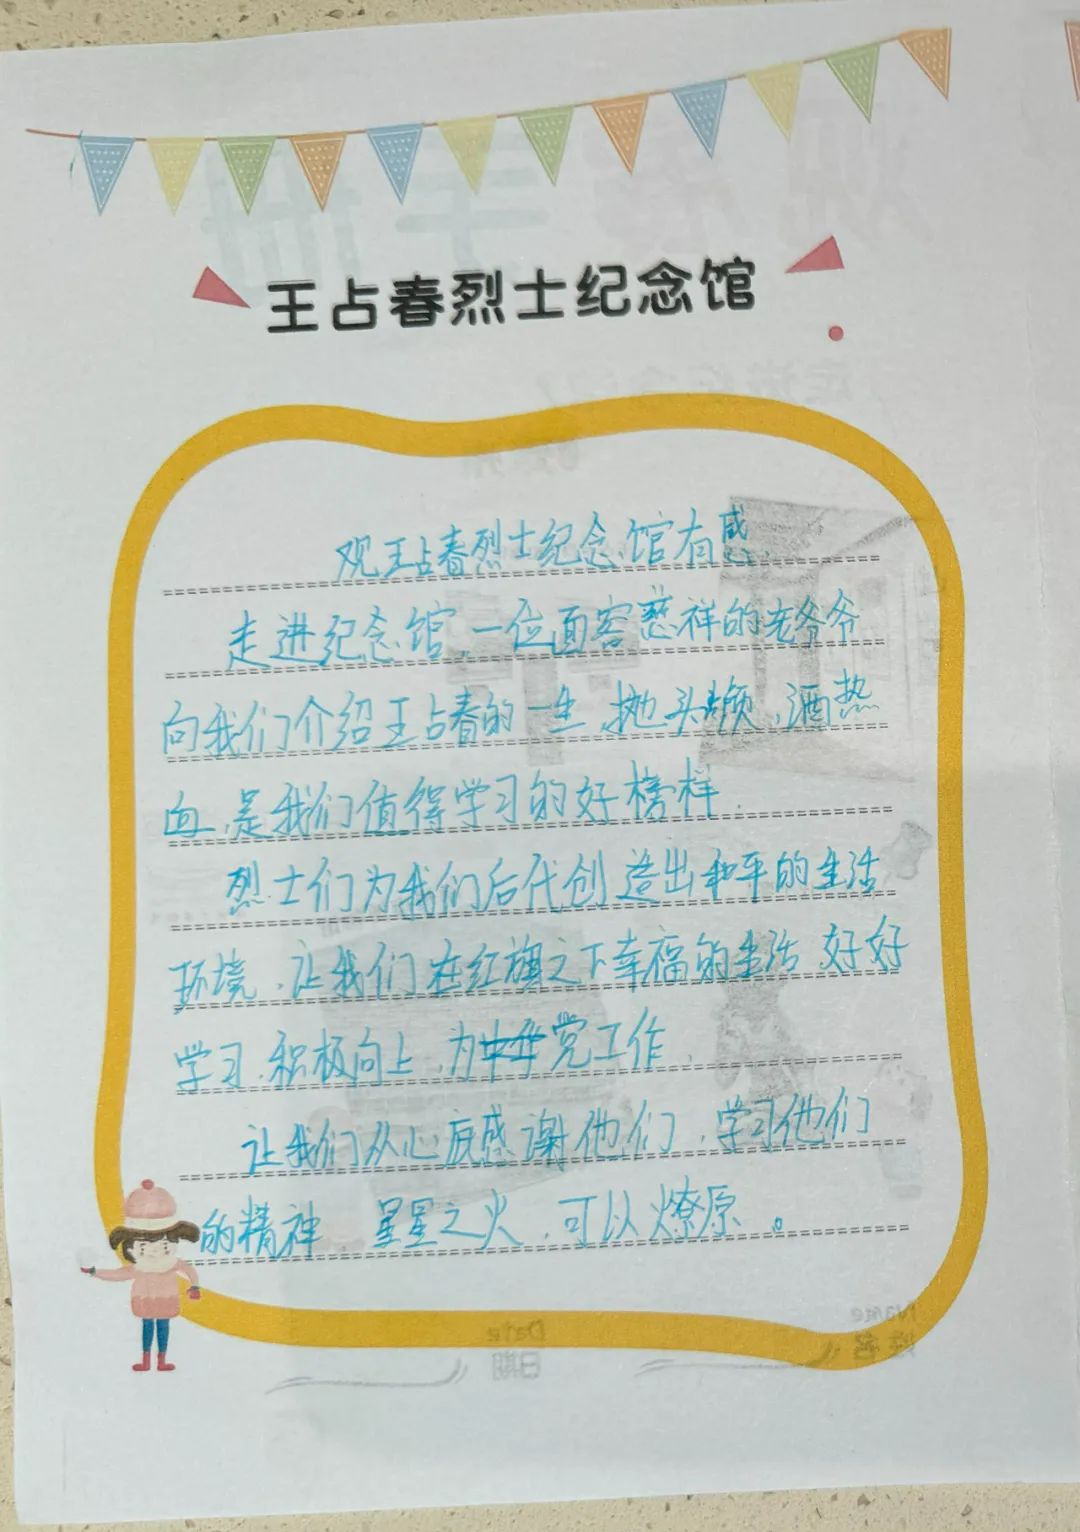 王占春烈士纪念馆
观王占春烈士纪念馆有感
走进纪念馆，一位面容慈祥的老爷爷
向我们介绍王占春的一生，抛头颅，洒热
血，是我们值得学习的好榜样．
烈士们为我们后代创造出和平的生活
环境，让我们在红旗之下幸福的生活 好好
学习，积极向上，为党工作．
让我们从心底感谢他们，学习他们
的精神 星星之火，可以燎原。
Name
姓名
Date
日期